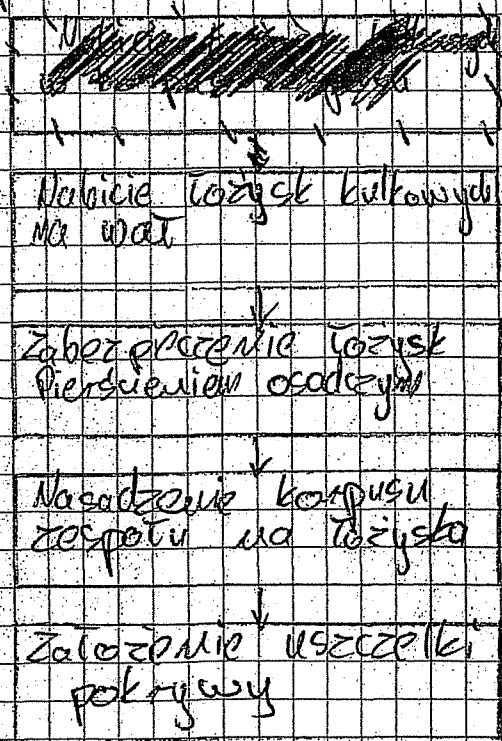 Nabicie łożysk kulkowych
na wał
Zabezpieczenie łożysk
Pierścieniem osadczym
Nasadzenie korpusu
zespołu na łożyska
Założenie uszczelki
pokrywy